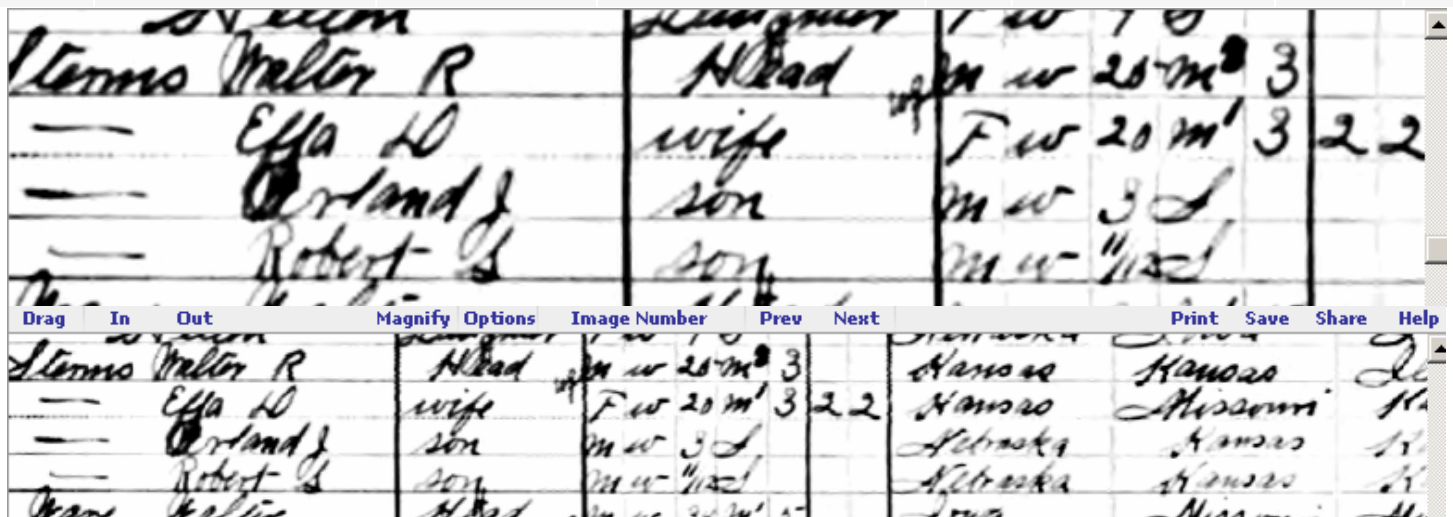 Storms Walter R Head m w 25 m 3
— Effa D wife F w 20 m1 3 2 2
— Orland J son m w 3 S
— Robert S son m w 11/12 S
Drag In Out Magnify Options Image Number Prev Next Print Save Share Help
Storms Walter R Head m w 25 m 3 Kansas Kansas
— Effa D wife F w 20 m1 3 2 2 Kansas Missouri
— Orland J son m w 3 S Nebraska Kansas
— Robert S son m w 11/12 S Nebraska Kansas
Head Iowa Missouri